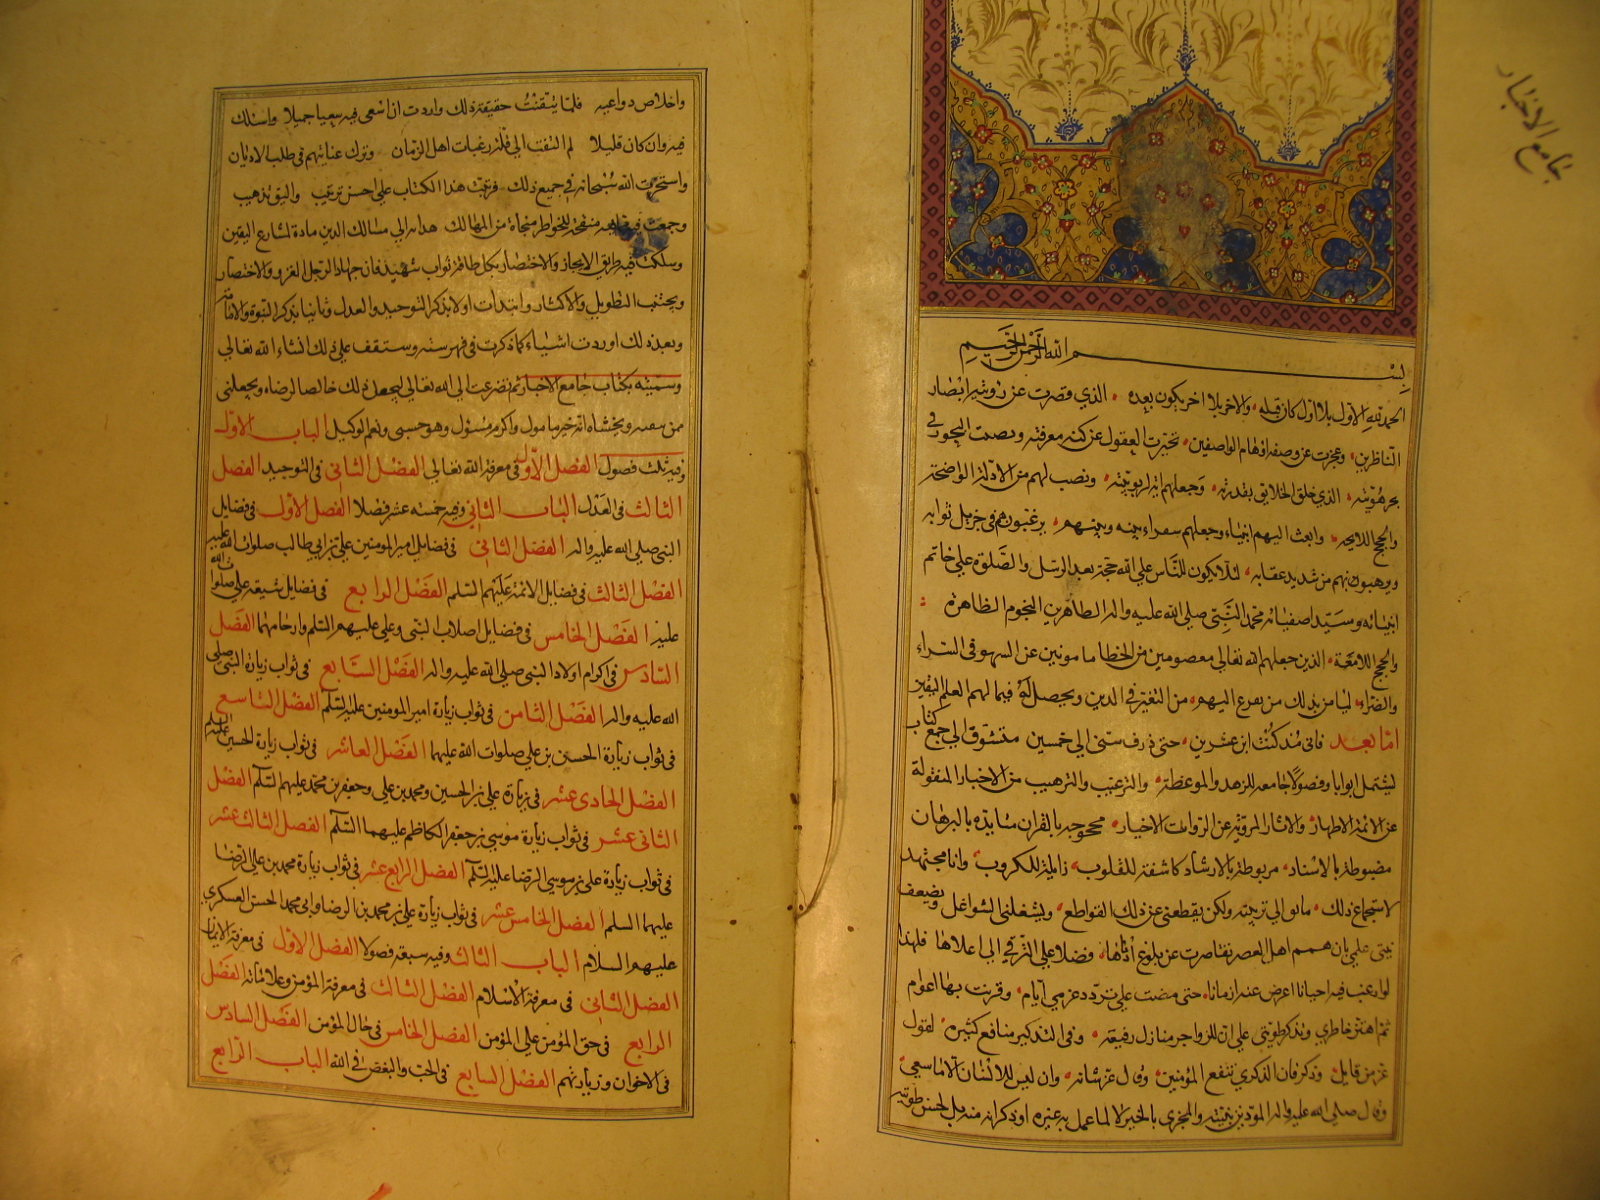 جامع الاخبار
بسم الله الرحمن الرحيم
الحمد لله الاول بلا اول كان قبله والاخر بلا اخر يكون بعده الذي قصرت عن رؤيته ابصار
الناظرين وعجزت عن وصفه اوهام الواصفين تحيرت العقول عن كنه معرفته وبصمت البحور في
بحر هويته الذي خلق الخلايق بقدرته وجعلهم اية لربوبيته ونصب لهم من الادلة الواضحة
والحجج اللايحة وابعث اليهم انبياء وجعلهم سفراء بينه وبينهم يرغبونهم في جزيل ثوابه
ويرهبونهم من شديد عقابه لئلا يكون للناس على الله حجة بعد الرسل والصلوة على خاتم
انبيائه وسيد اصفيائه محمد النبي صلى الله عليه واله الطاهرين النجوم الظاهرة
والحجج اللامعة الذين جعلهم الله تعالى معصومين من الخطا مامونين عن السهو في السراء
والضراء ليامن بذلك من يفرع اليهم من التغير في الدين ويحصل له فيما لهم العلم اليقين
اما بعد فانى مذ كنت ابن عشرين حتى ذرف سنى الى خمسين متشوق الى جمع كتاب
ليشتمل ابوابا وفصولا جامعه للزهد والموعظة والترغيب والترهيب من الاخبار المنقولة
عن الائمة الاطهار والاثار المروية عن الروات الاخيار محجوجه بالقران متايده بالبرهان
مضبوطة بالاسناد مربوطة بالارشاد كاشفة للقلوب زايلة للكروب وانا مجتهد
لاستجماع ذلك مانوالى ترتيبه ولكن يقطعنى عن ذلك القواطع ويشغلنى الشواغل ويضعف
نيتى علمي بان همم اهل العصر تقاصرت عن بلوغ ادناها فضلا على الترقي الى اعلاها فلهذا
لو ارغب فيه احيانا اعرض عنه ازمانا حتى مضت على تردد عزمي ايام وقربت بها اعوام
ثم اهتز خاطري وتذكر طويتي على ان للزواجر منازل رفيعة وفى التذكير منافع كثيرة لقول
عز من قايل وذكر فان الذكرى تنفع المؤمنين وقال عز شانه وان ليس للانسان الا ما سعى
وقال صلى الله عليه واله المؤمن بنيته والمجزى بالخير لا لما عمل به غيره اوذكرانه منه بل لحسن طويته
واخلاص دواعيه فلما تيقنت حقيقة ذلك واردت ان اسعى فيه سعيا جميلا واسلك
فيه وان كان قليلا لم التفت الى قلة رغبات اهل الزمان وترك عنايتهم في طلب الاديان
واستخرت الله سبحانه في جميع ذلك فرتبت هذا الكتاب على احسن ترتيب واليق تذهيب
وجمعت فيه منقحة للخواطر منجاة من المهالك هداية الى مسالك الدين مادة لشارع اليقين
وسلكت فيه طريق الايجاز والاختصار بكل طاقة ثواب شهيد فان جهاد الرجل الغزو والاختصار
ويجتنب التطويل والاكثار وابتدات اولا بذكر التوحيد والعدل وثانيا بذكر النبوة والامامة
وبعد ذلك اوردت اشياء كما ذكرت في فهرسته وستقف على ذلك انشاء الله تعالى
وسميته بكتاب جامع الاخبار ثم تضرعت الى الله تعالى ليجعل ذلك خالصا لرضاه ويجعلنى
ممن سعه ويخشاه انه خير مامول واكرم مسئول وهو حسبى ونعم الوكيل الباب الاول
وفيه ثلث فصول الفصل الاول في معرفة الله تعالى الفصل الثانى فى التوحيد الفصل
الثالث فى العدل الباب الثانى وفيه خمسة عشر فصلا الفصل الاول فى فضايل
النبي صلى الله عليه واله الفصل الثانى فى فضايل امير المومنين على بن ابي طالب صلوات الله عليه
الفصل الثالث فى فضايل الائمة عليهم السلم الفصل الرابع فى فضايل شيعة على صلوات الله
عليه الفصل الخامس فى فضايل اصلاب النبى وعلى عليهم السلم وارحامهما الفصل
السادس فى اكرام اولاد النبى صلى الله عليه واله الفصل السابع فى ثواب زيارة النبى صلى
الله عليه واله الفصل الثامن فى ثواب زيارة امير المومنين عليه السلم الفصل التاسع
فى ثواب زيارة الحسن بن على صلوات الله عليهما الفصل العاشر فى ثواب زيارة الحسين عليه السلم
الفصل الحادى عشر فى زيارة على بن الحسين ومحمد بن على وجعفر بن محمد عليهم السلم الفصل
الثانى عشر فى ثواب زيارة موسى بن جعفر الكاظم عليهما السلم الفصل الثالث عشر
فى ثواب زيارة على بن موسى الرضا عليه السلم الفصل الرابع عشر فى ثواب زيارة محمد بن على الرضا
عليهما السلم الفصل الخامس عشر فى ثواب زيارة على بن محمد بن الرضا وابى محمد الحسن العسكرى
عليهم السلام الباب الثالث وفيه سبعة فصولا الفصل الاول فى معرفة الايمان
الفصل الثانى فى معرفة الاسلام الفصل الثالث فى معرفة المؤمن وعلاماته الفصل
الرابع فى حق المؤمن على المؤمن الفصل الخامس فى حال المؤمن الفصل السادس
فى الاخوان وزيارتهم الفصل السابع فى الحب والبغض فى الله الباب الرابع